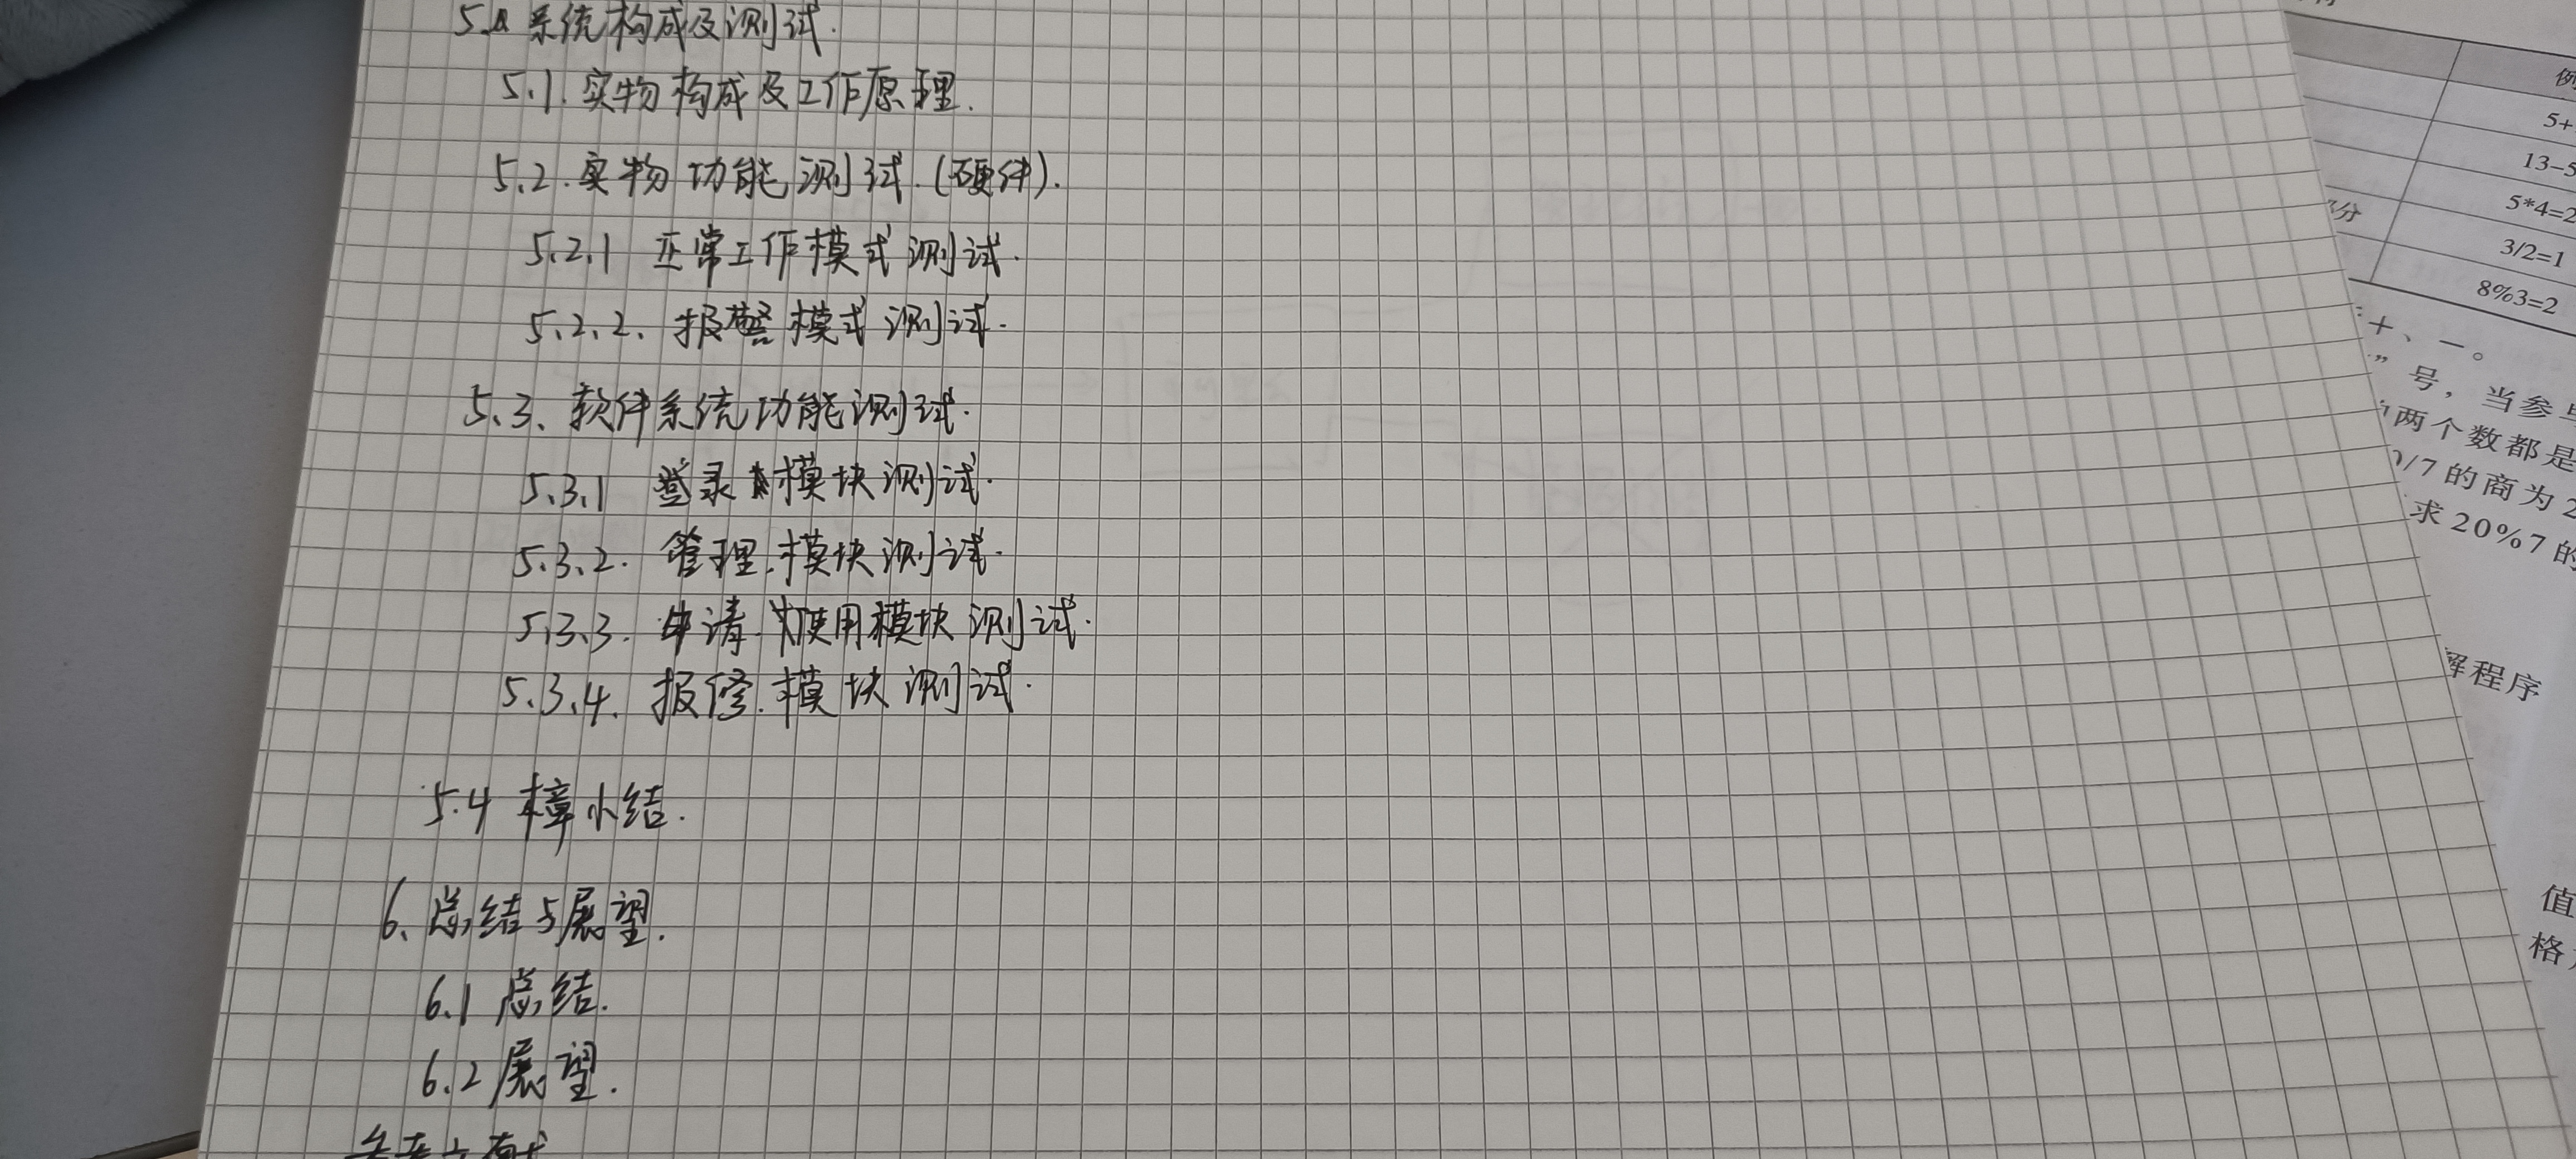 5. 系统构成及测试.
5.1. 实物构成及工作原理.
5.2. 实物功能测试. (硬件).
5.2.1 正常工作模式测试.
5.2.2. 报警模式测试.
5.3. 软件系统功能测试.
5.3.1 登录模块测试.
5.3.2. 管理模块测试.
5.3.3. 申请使用模块测试.
5.3.4. 报修模块测试.
5.4 本章小结.
6. 总结与展望.
6.1 总结.
6.2 展望.
参考文献
例
5+
13-5
5*4=2
3/2=1
8%3=2
十、一。
”号，当参与
两个数都是
0/7的商为2
求20%7的
解程序
值
格